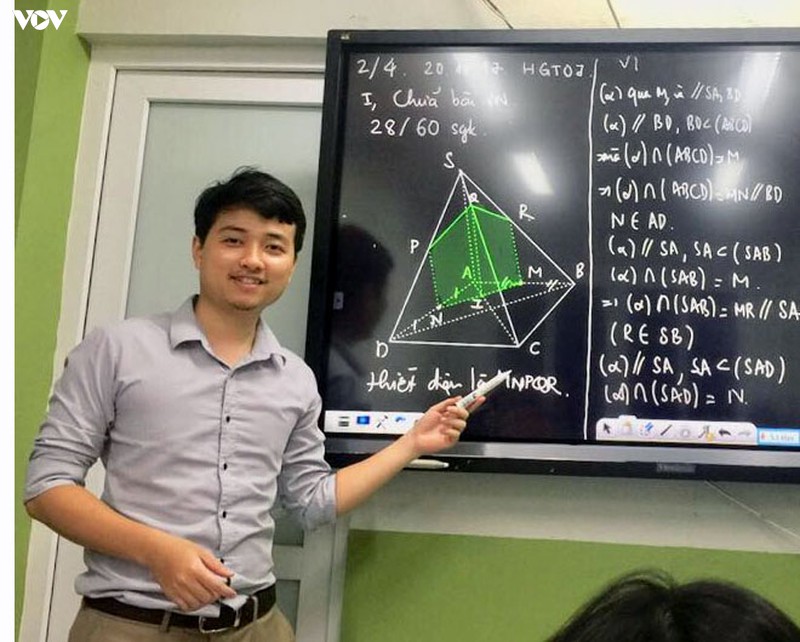 VOV
2/4. HGTOJ.
I, Chữa bài
28/60 sgk.
S
Q
R
P
A
M
B
N
I
D
C
thiết diện là MNPQR.
VI
(α) qua M, và // SA, BD
(α) // BD, BD ⊂ (ABCD)
mà (α) ∩ (ABCD) = M
⇒ (α) ∩ (ABCD) = MN // BD
N ∈ AD.
(α) // SA, SA ⊂ (SAB)
(α) ∩ (SAB) = M.
⇒ (α) ∩ (SAB) = MR // SA
(R ∈ SB)
(α) // SA, SA ⊂ (SAD)
(α) ∩ (SAD) = N.